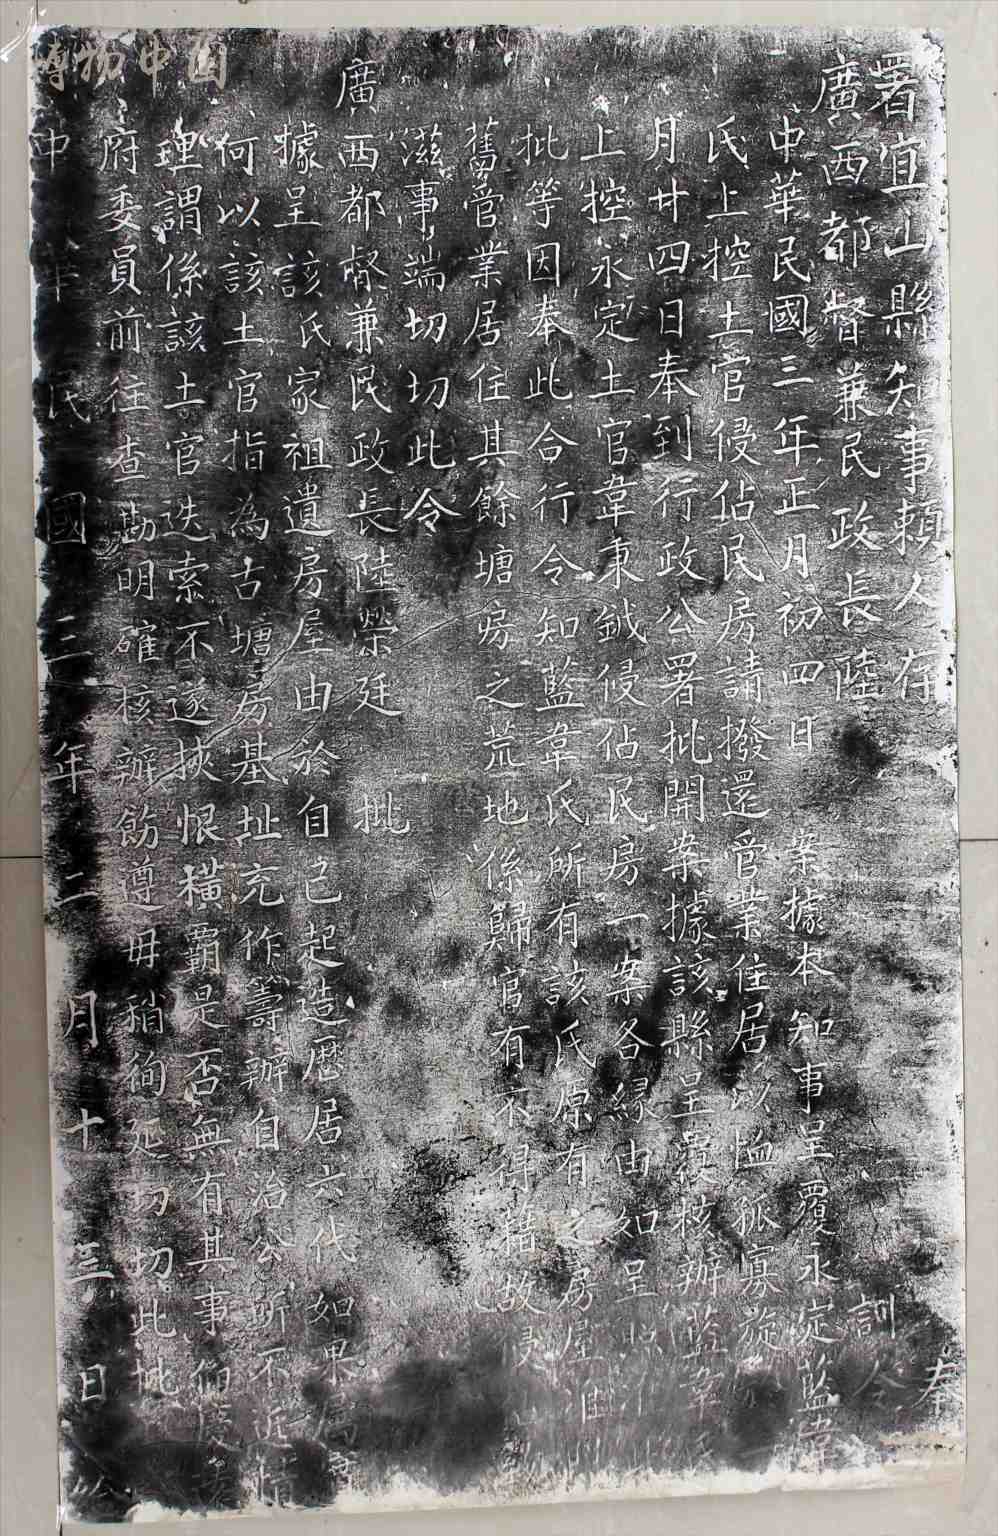 署宜山縣知事賴人存 奉
廣西都督兼民政長陸 訓令
中華民國三年正月初四日 案據本知事呈覆永定藍韋
氏上控土官侵佔民房請撥還管業住居以恤孤寡旋
月廿四日奉到行政公署批開案據該縣呈覆核辦藍韋氏
上控永定土官韋秉鉞侵佔民房一案各緣由如呈照准此
批等因奉此合行令知藍韋氏所有該氏原有之房屋准
舊管業居住其餘塘房之荒地係歸官有不得藉故侵
滋事端切切此令
廣西都督兼民政長陸榮廷 批
據呈該氏家祖遺房屋由於自己起造歷居六代如果屬實
何以該土官指為古塘房基址充作籌辦自治公所不近情
理謂係該土官迭索不遂挾恨橫霸是否無有其事仰
府委員前往查勘明確核辦飭遵毋稍徇延切切此批
中華民國三年二月十三日
博物中国